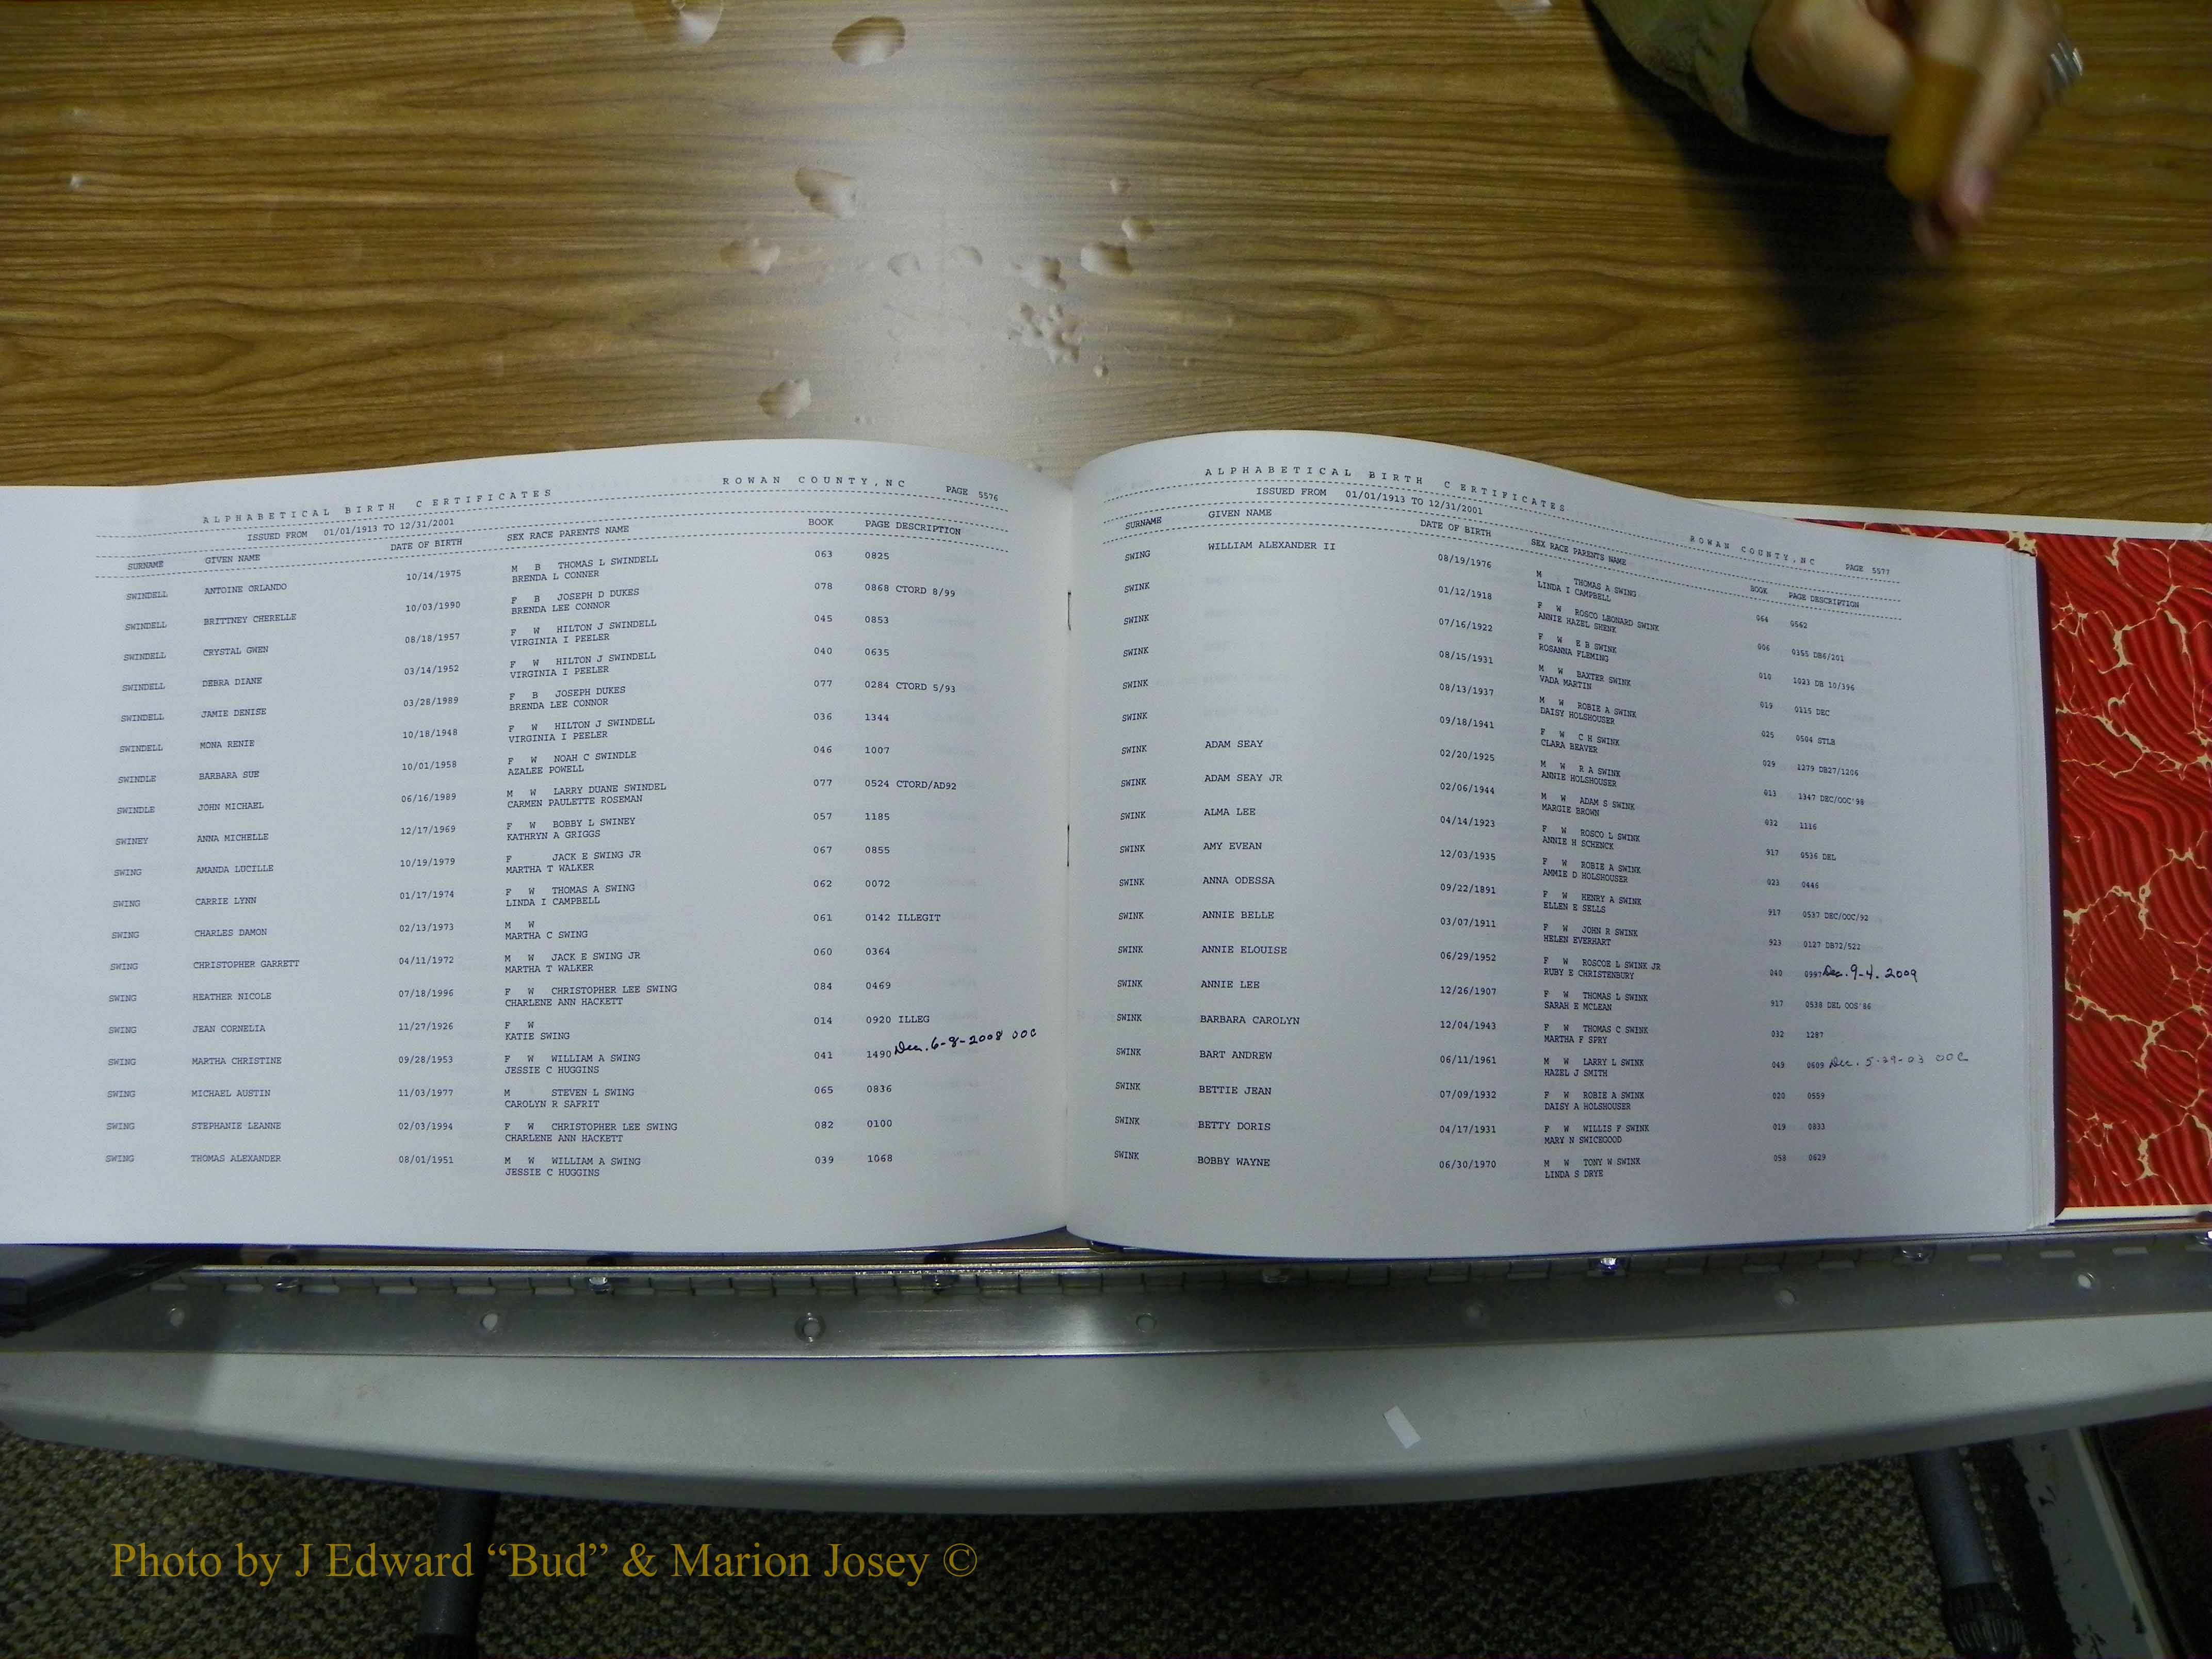 ALPHABETICAL BIRTH CERTIFICATES ROWAN COUNTY,NC PAGE 5576
ISSUED FROM 01/01/1913 TO 12/31/2001
SURNAME GIVEN NAME DATE OF BIRTH SEX RACE PARENTS NAME BOOK PAGE DESCRIPTION
SWINDELL ANTOINE ORLANDO 10/14/1975 M B THOMAS L SWINDELL 063 0825
BRENDA L CONNER
SWINDELL BRITTNEY CHERELLE 10/03/1990 F B JOSEPH D DUKES 078 0868 CTORD 8/99
BRENDA LEE CONNOR
SWINDELL CRYSTAL GWEN 08/18/1957 F W HILTON J SWINDELL 045 0853
VIRGINIA I PEELER
SWINDELL DEBRA DIANE 03/14/1952 F W HILTON J SWINDELL 040 0635
VIRGINIA I PEELER
SWINDELL JAMIE DENISE 03/28/1989 F B JOSEPH DUKES 077 0284 CTORD 5/93
BRENDA LEE CONNOR
SWINDELL MONA RENIE 10/18/1948 F W HILTON J SWINDELL 036 1344
VIRGINIA I PEELER
SWINDLE BARBARA SUE 10/01/1958 F W NOAH C SWINDLE 046 1007
AZALEE POWELL
SWINDLE JOHN MICHAEL 06/16/1989 M W LARRY DUANE SWINDEL 077 0524 CTORD/AD92
CARMEN PAULETTE ROSEMAN
SWINEY ANNA MICHELLE 12/17/1969 F W BOBBY L SWINEY 057 1185
KATHRYN A GRIGGS
SWING AMANDA LUCILLE 10/19/1979 F JACK E SWING JR 067 0855
MARTHA T WALKER
SWING CARRIE LYNN 01/17/1974 F W THOMAS A SWING 062 0072
LINDA I CAMPBELL
SWING CHARLES DAMON 02/13/1973 M W 061 0142 ILLEGIT
MARTHA C SWING
SWING CHRISTOPHER GARRETT 04/11/1972 M W JACK E SWING JR 060 0364
MARTHA T WALKER
SWING HEATHER NICOLE 07/18/1996 F W CHRISTOPHER LEE SWING 084 0469
CHARLENE ANN HACKETT
SWING JEAN CORNELIA 11/27/1926 F W 014 0920 ILLEG
KATIE SWING
SWING MARTHA CHRISTINE 09/28/1953 F W WILLIAM A SWING 041 1490 Dec. 6-8-2008 OOC
JESSIE C HUGGINS
SWING MICHAEL AUSTIN 11/03/1977 M STEVEN L SWING 065 0836
CAROLYN R SAFRIT
SWING STEPHANIE LEANNE 02/03/1994 F W CHRISTOPHER LEE SWING 082 0100
CHARLENE ANN HACKETT
SWING THOMAS ALEXANDER 08/01/1951 M W WILLIAM A SWING 039 1068
JESSIE C HUGGINS
ALPHABETICAL BIRTH CERTIFICATES ROWAN COUNTY,NC PAGE 5577
ISSUED FROM 01/01/1913 TO 12/31/2001
SURNAME GIVEN NAME DATE OF BIRTH SEX RACE PARENTS NAME BOOK PAGE DESCRIPTION
SWING WILLIAM ALEXANDER II 08/19/1976 M THOMAS A SWING 064 0562
LINDA I CAMPBELL
SWINK 01/12/1918 F W ROSCO LEONARD SWINK 006 0355 DB6/201
ANNIE HAZEL SHENK
SWINK 07/16/1922 F W E B SWINK 010 1023 DB 10/396
ROSANNA FLEMING
SWINK 08/15/1931 M W BAXTER SWINK 019 0115 DEC
VADA MARTIN
SWINK 08/13/1937 M W ROBIE A SWINK 025 0504 STLB
DAISY HOLSHOUSER
SWINK 09/18/1941 F W C H SWINK 029 1279 DB27/1206
CLARA BEAVER
SWINK ADAM SEAY 02/20/1925 M W R A SWINK 013 1347 DEC/OOC'98
ANNIE HOLSHOUSER
SWINK ADAM SEAY JR 02/06/1944 M W ADAM S SWINK 032 1116
MARGIE BROWN
SWINK ALMA LEE 04/14/1923 F W ROSCO L SWINK 917 0536 DEL
ANNIE H SCHENCK
SWINK AMY EVEAN 12/03/1935 F W ROBIE A SWINK 023 0446
AMMIE D HOLSHOUSER
SWINK ANNA ODESSA 09/22/1891 F W HENRY A SWINK 917 0537 DEC/OOC/92
ELLEN E SELLS
SWINK ANNIE BELLE 03/07/1911 F W JOHN R SWINK 923 0127 DB72/522
HELEN EVERHART
SWINK ANNIE ELOUISE 06/29/1952 F W ROSCOE L SWINK JR 040 0997 Dec. 9-4. 2009
RUBY E CHRISTENBURY
SWINK ANNIE LEE 12/26/1907 F W THOMAS L SWINK 917 0538 DEL OOS'86
SARAH E MCLEAN
SWINK BARBARA CAROLYN 12/04/1943 F W THOMAS C SWINK 032 1287
MARTHA F SPRY
SWINK BART ANDREW 06/11/1961 M W LARRY L SWINK 049 0609 Dec. 5-29-03 OOC
HAZEL J SMITH
SWINK BETTIE JEAN 07/09/1932 F W ROBIE A SWINK 020 0559
DAISY A HOLSHOUSER
SWINK BETTY DORIS 04/17/1931 F W WILLIS F SWINK 019 0833
MARY N SWICEGOOD
SWINK BOBBY WAYNE 06/30/1970 M W TONY W SWINK 058 0629
LINDA S DRYE
Photo by J Edward “Bud” & Marion Josey ©